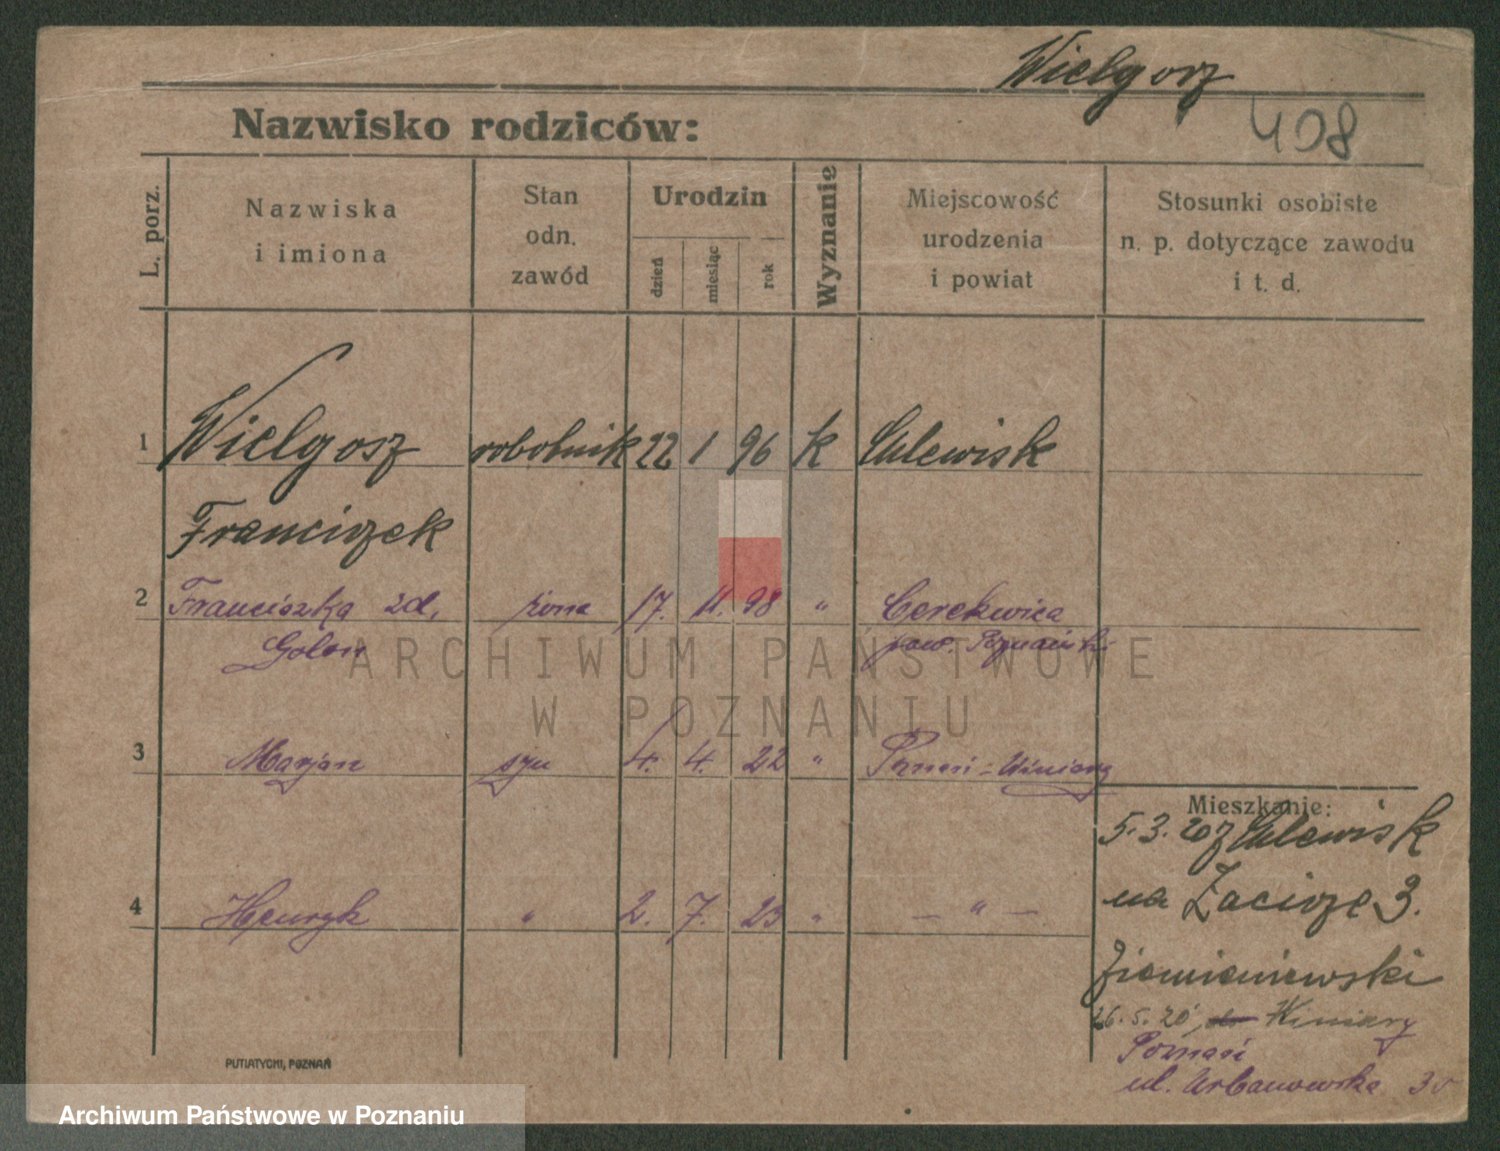 Wielgosz
408
Nazwisko rodziców:
L. porz.
Nazwiska
i imiona
Stan
odn.
zawód
Urodzin
dzień
miesiąc
rok
Wyznanie
Miejscowość
urodzenia
i powiat
Stosunki osobiste
n. p. dotyczące zawodu
i t. d.
1 Wielgosz robotnik 22 1 96 k
Franciszek
2 Franciszka zd. żona 17. 11. 98 " Cerekwica
Golon pow. Poznański
ARCHIWUM PAŃSTWOWE
W POZNANIU
3 Marjan syn 4. 4. 22 " Poznań-Winiary
Mieszkanie:
5.3.20 z
4 Henryk " 2. 7. 23 " — " —
na Zacisze 3.
26.5.20 do Winiary
Poznań
ul. Urbanowska
PUTIATYCKI, POZNAŃ
Archiwum Państwowe w Poznaniu